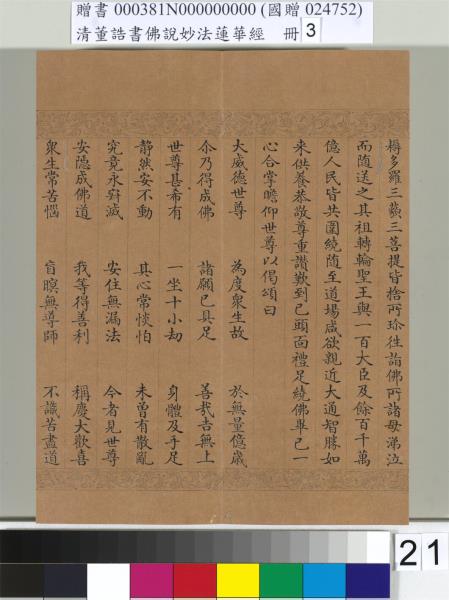 贈書 000381N000000000 (國贈 024752)
清董誥書佛說妙法蓮華經 冊 3
耨多羅三藐三菩提皆捨所珍往詣佛所諸母涕泣
而隨送之其祖轉輪聖王與一百大臣及餘百千萬
億人民皆共圍繞隨至道場咸欲親近大通智勝如
來供養恭敬尊重讚歎到已頭面禮足繞佛畢已一
心合掌瞻仰世尊以偈頌曰
大威德世尊 為度衆生故 於無量億歲
尒乃得成佛 諸願已具足 善哉吉無上
世尊甚希有 一坐十小劫 身體及手足
靜然安不動 其心常惔怕 未曾有散亂
究竟永㝷滅 安住無漏法 今者見世尊
安隱成佛道 我等得善利 稱慶大歡喜
衆生常苦惱 盲瞑無導師 不識苦盡道
21